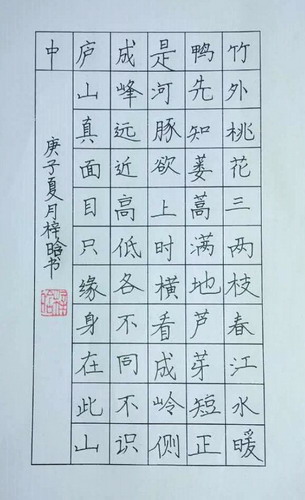 竹外桃花三两枝春江水暖
鸭先知蒌蒿满地芦芽短正
是河豚欲上时横看成岭侧
成峰远近高低各不同不识
庐山真面目只缘身在此山
中
庚子夏月梓晗书